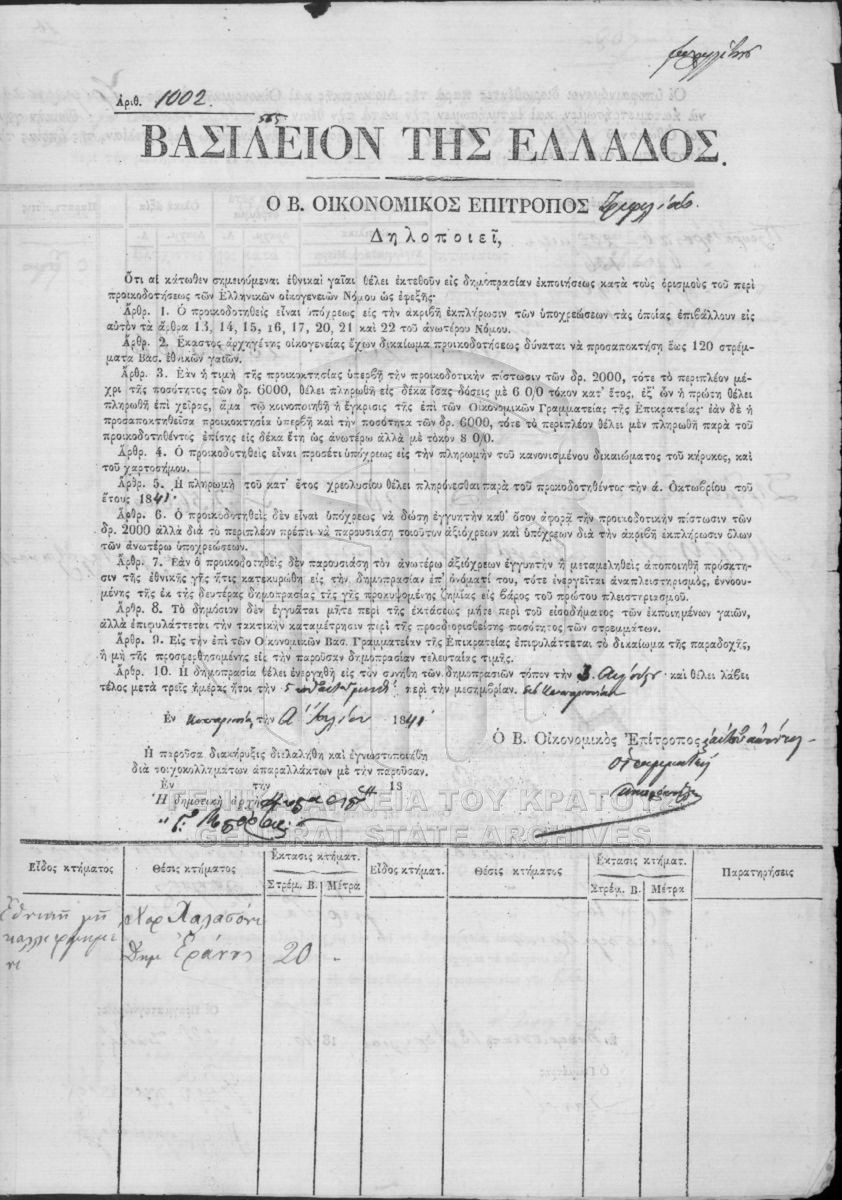 Ἀριθ. 1002.
565
ΒΑΣΙΛΕΙΟΝ ΤΗΣ ΕΛΛΑΔΟΣ.
Ο Β. ΟΙΚΟΝΟΜΙΚΟΣ ΕΠΙΤΡΟΠΟΣ Τριφυλίας.
Δηλοποιεῖ,
Ὅτι αἱ κάτωθεν σημειούμεναι ἐθνικαὶ γαῖαι θέλει ἐκτεθοῦν εἰς δημοπρασίαν ἐκποιήσεως κατὰ τοὺς ὁρισμοὺς τοῦ περὶ
προικοδοτήσεως τῶν Ἑλληνικῶν οἰκογενειῶν Νόμου ὡς ἐφεξῆς·
Ἄρθρ. 1. Ὁ προικοδοτηθεὶς εἶναι ὑπόχρεως εἰς τὴν ἀκριβῆ ἐκπλήρωσιν τῶν ὑποχρεώσεων τὰς ὁποίας ἐπιβάλλουν εἰς
αὐτὸν τὰ ἄρθρα 13, 14, 15, 16, 17, 20, 21 καὶ 22 τοῦ ἀνωτέρου Νόμου.
Ἄρθρ. 2. Ἕκαστος ἀρχηγέτης οἰκογενείας ἔχων δικαίωμα προικοδοτήσεως δύναται νὰ προσαποκτήσῃ ἕως 120 στρέμ-
ματα Βασ. ἐθνικῶν γαιῶν.
Ἄρθρ. 3. Ἐὰν ἡ τιμὴ τῆς προικοκτησίας ὑπερβῇ τὴν προικοδοτικὴν πίστωσιν τῶν δρ. 2000, τότε τὸ περιπλέον μέ-
χρι τῆς ποσότητος τῶν δρ. 6000, θέλει πληρωθῆ εἰς δέκα ἴσας δόσεις μὲ 6 0/0 τόκον κατ' ἔτος, ἐξ' ὧν ἡ πρώτη θέλει
πληρωθῆ ἐπὶ χεῖρας, ἅμα τῷ κοινοποιηθῇ ἡ ἔγκρισις τῆς ἐπὶ τῶν Οἰκονομικῶν Γραμματείας τῆς Ἐπικρατείας· ἐὰν δὲ ἡ
προσαποκτηθεῖσα προικοκτησία ὑπερβῇ καὶ τὴν ποσότητα τῶν δρ. 6000, τότε τὸ περιπλέον θέλει μὲν πληρωθῆ παρὰ τοῦ
προικοδοτηθέντος ἐπίσης εἰς δέκα ἔτη ὡς ἀνωτέρω ἀλλὰ μὲ τόκον 8 0/0.
Ἄρθρ. 4. Ὁ προικοδοτηθεὶς εἶναι προσέτι ὑπόχρεως εἰς τὴν πληρωμὴν τοῦ κανονισμένου δικαιώματος τοῦ κήρυκος, καὶ
τοῦ χαρτοσήμου.
Ἄρθρ. 5. Ἡ πληρωμὴ τοῦ κατ' ἔτος χρεολυσίου θέλει πληρόνεσθαι παρὰ τοῦ προκοδοτηθέντος τὴν ά. Ὀκτωβρίου τοῦ
ἔτους 1841·
Ἄρθρ. 6. Ὁ προικοδοτηθεὶς δὲν εἶναι ὑπόχρεως νὰ δώσῃ ἐγγυητὴν καθ' ὅσον ἀφορᾷ τὴν προικοδοτικὴν πίστωσιν τῶν
δρ. 2000 ἀλλὰ διὰ τὸ περιπλέον πρέπει νὰ παρουσιάσῃ τοιοῦτον ἀξιόχρεων καὶ ὑπόχρεων διὰ τὴν ἀκριβῆ ἐκπλήρωσιν ὅλων
τῶν ἀνωτέρω ὑποχρεώσεων.
Ἄρθρ. 7. Ἐὰν ὁ προικοδοτηθεὶς δὲν παρουσιάσῃ τὸν ἀνωτέρω ἀξιόχρεων ἐγγυητὴν ἢ μεταμεληθεὶς ἀποποιηθῇ πρόσκτη-
σιν τῆς ἐθνικῆς γῆς ἥτις κατεκυρώθη εἰς τὴν δημοπρασίαν ἐπ' ὀνόματί του, τότε ἐνεργεῖται ἀναπλειστηρισμὸς, ἐννοου-
μένης τῆς ἐκ τῆς δευτέρας δημοπρασίας τῆς γῆς προκυψομένης ζημίας εἰς βάρος τοῦ πρώτου πλειστηριασμοῦ.
Ἄρθρ. 8. Τὸ δημόσιον δὲν ἐγγυᾶται μῆτε περὶ τῆς ἐκτάσεως μήτε περὶ τοῦ εἰσοδήματος τῶν ἐκποιημένων γαιῶν,
ἀλλὰ ἐπιφυλάττεται τὴν τακτικὴν καταμέτρησιν περὶ τῆς προσδιορισθείσης ποσότητος τῶν στρεμμάτων.
Ἄρθρ. 9. Εἰς τὴν ἐπὶ τῶν Οἰκονομικῶν Βασ. Γραμματείαν τῆς Ἐπικρατείας ἐπιφυλάττεται τὸ δικαίωμα τῆς παραδοχῆς,
ἢ μὴ τῆς προσφερθησομένης εἰς τὴν παροῦσαν δημοπρασίαν τελευταίας τιμῆς.
Ἄρθρ. 10. Ἡ δημοπρασία θέλει ἐνεργηθῆ εἰς τὸν συνήθη τῶν δημοπρασιῶν τόπον τὴν 3. καὶ θέλει λάβει
τέλος μετὰ τρεῖς ἡμέρας ἤτοι τὴν 5 περὶ τὴν μεσημβρίαν.
Ἐν Κυπαρισσίᾳ τὴν 1841·
Ὁ Β. Οἰκονομικὸς Ἐπίτροπος
Ὁ Γραμματεὺς
Ἡ παροῦσα διακήρυξις διελαλήθη καὶ ἐγνωστοποιήθη
διὰ τοιχοκολλήμα ἀπαραλλάκτων μὲ τὴν παροῦσαν.
Ἐν τὴν 18
Ἡ δημοτικὴ ἀρχὴ
ΓΕΝΙΚΑ ΑΡΧΕΙΑ ΤΟΥ ΚΡΑΤΟΥΣ
GENERAL STATE ARCHIVES
Εἶδος κτήματος Θέσις κτήματος Ἔκτασις κτήματ. Εἶδος κτήματ. Θέσις κτήματος Ἔκτασις κτήματ. Παρατηρήσεις
Στρέμ. Β. Μέτρα Στρέμ. Β. Μέτρα
Ἐθνικὴ γῆ Χαλαζόνι
καλλιεργημέ
νη Δημ Ἐράνης 20 -